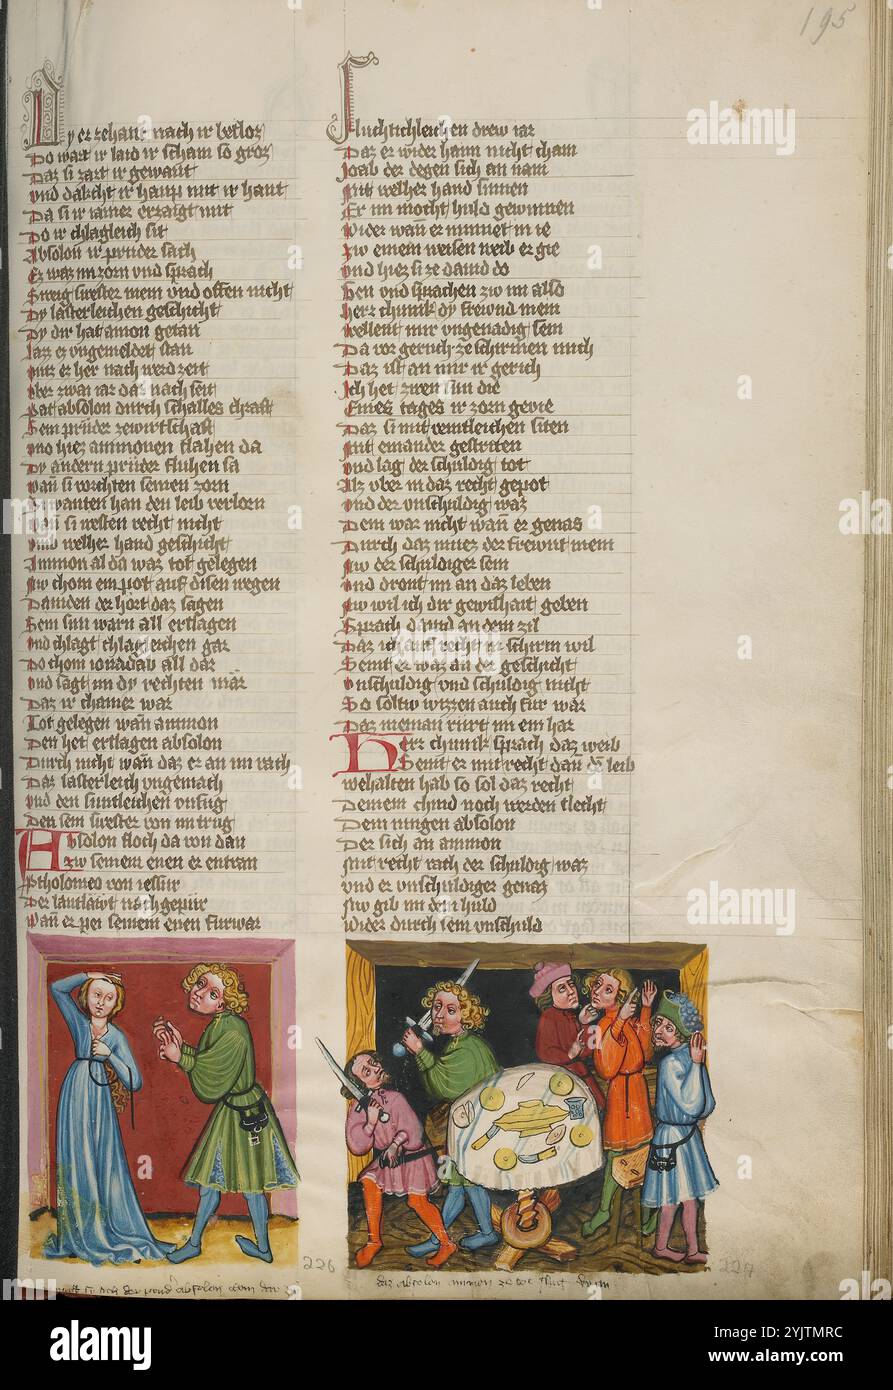 195
Dy er zehant nach ir besloz
Do wart ir laid ir scham so groz
Daz si zart ir gewant
Und dakcht ir haup mit ir hant
Da si ir iamer erzaigt mit
Do ir chlagleich sit
Absolon ir prüder sach
Er waz im zorn und sprach
Sweig swester mein und offen nicht
Dy lasterleichen geschicht
Dy dir hat amon getan
Laz er ungemeldet stan
untz er her nach werd zeit
uber zwai iar daz nach seit
Pat absolon durch schalles chraft
Sein prüder ze wirtschaft
und hiez ammonen slahen da
Dy andern prüder fluhen sa
wan si vorchten seinen zorn
Si wanten han den leib verlorn
wan si westen recht nicht
von welher hand geschicht
Ammon al da waz tot gelegen
Nw chom ein pot auf disen wegen
Dauiden der hort daz sagen
Sein sun warn all erslagen
und chlagt chlagleichen gar
Do chom ionadab all dar
und sagt im dy rechten mär
Daz ir chainer war
Tot gelegen wan ammon
Den het erslagen absolon
Durch nicht wan daz er an im rach
Daz lasterleich ungemach
und den suntleichen unfug
Den sein swester von im trug
Absolon floch da von dan
Zw seinem enen er entran
Ptholomeo von iessur
Der lantlawt nachgepur
wan er pei seinem enen furwar
Fluchtichleichen drew iar
Daz er wider haim nicht cham
Joab der degen sich an nam
mit welher hand sinnen
Er im mocht huld gewinnen
wider wan er minnet in ie
Zw einem weisen weib er gie
und hiez si ze dauid do
Gen und sprachen zw im also
herr chunik dy frewnd mein
wellent mir ungenadig sein
Da vor geruch ze schirmen mich
Daz ist an mir ir gerich
Ich het zwen sun die
Eines tages ir zorn gevie
Daz si mit veintleichen siten
mit einander gestriten
und lag der schuldig tot
Als uber in daz recht gepot
und der unschuldig waz
Dem war nicht wan er genas
Durch daz muez der frewnt mein
Nw der schuldiger sein
und dront im an daz leben
Nw wil ich dir gewishait geben
Sprach dauid an dem zil
Daz ich auf recht in schirm wil
Seint er waz an der geschicht
unschuldig und schuldig nicht
So soltw wizzen auch fur war
Daz nieman rürt im ein har
Herr chunik sprach daz weib
Seint er mit recht dan den leib
wehalten hab so sol daz recht
Deinem chind noch werden slecht
Dem iungen absolon
Der sich an ammon
mit recht rach der schuldig waz
und er unschuldiger genaz
Nw gib im dein huld
wider durch sein unschuld
226
227
daz absolon ammon ze tot slug
alamy
Image ID: 2YJTMRC
www.alamy.com